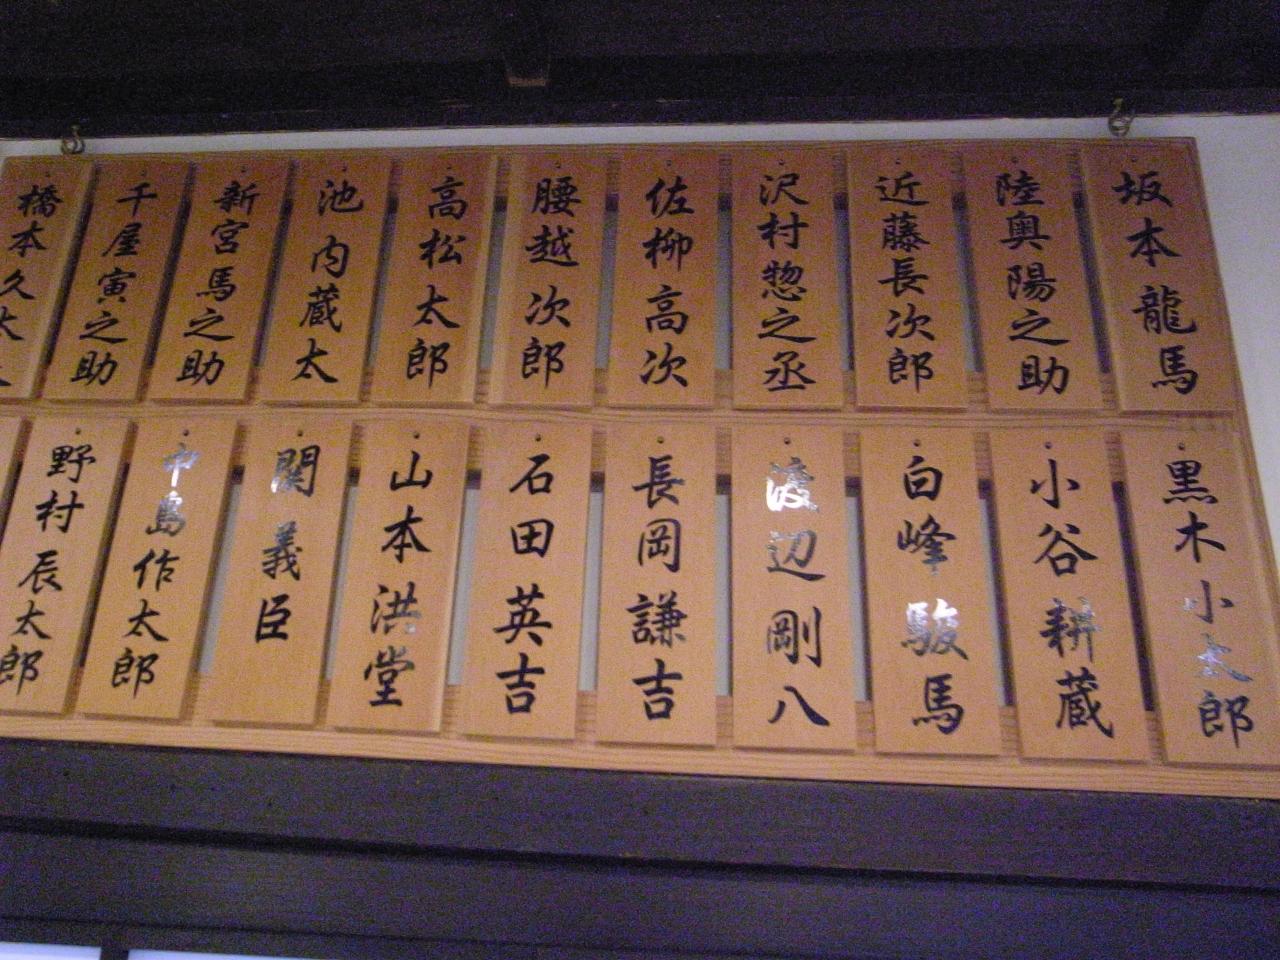 坂本龍馬
陸奥陽之助
近藤長次郎
沢村惣之丞
佐柳高次
腰越次郎
高松太郎
池内蔵太
新宮馬之助
千屋寅之助
橋本久太
黒木小太郎
小谷耕蔵
白峰駿馬
渡辺剛八
長岡謙吉
石田英吉
山本洪堂
関義臣
中島作太郎
野村辰太郎